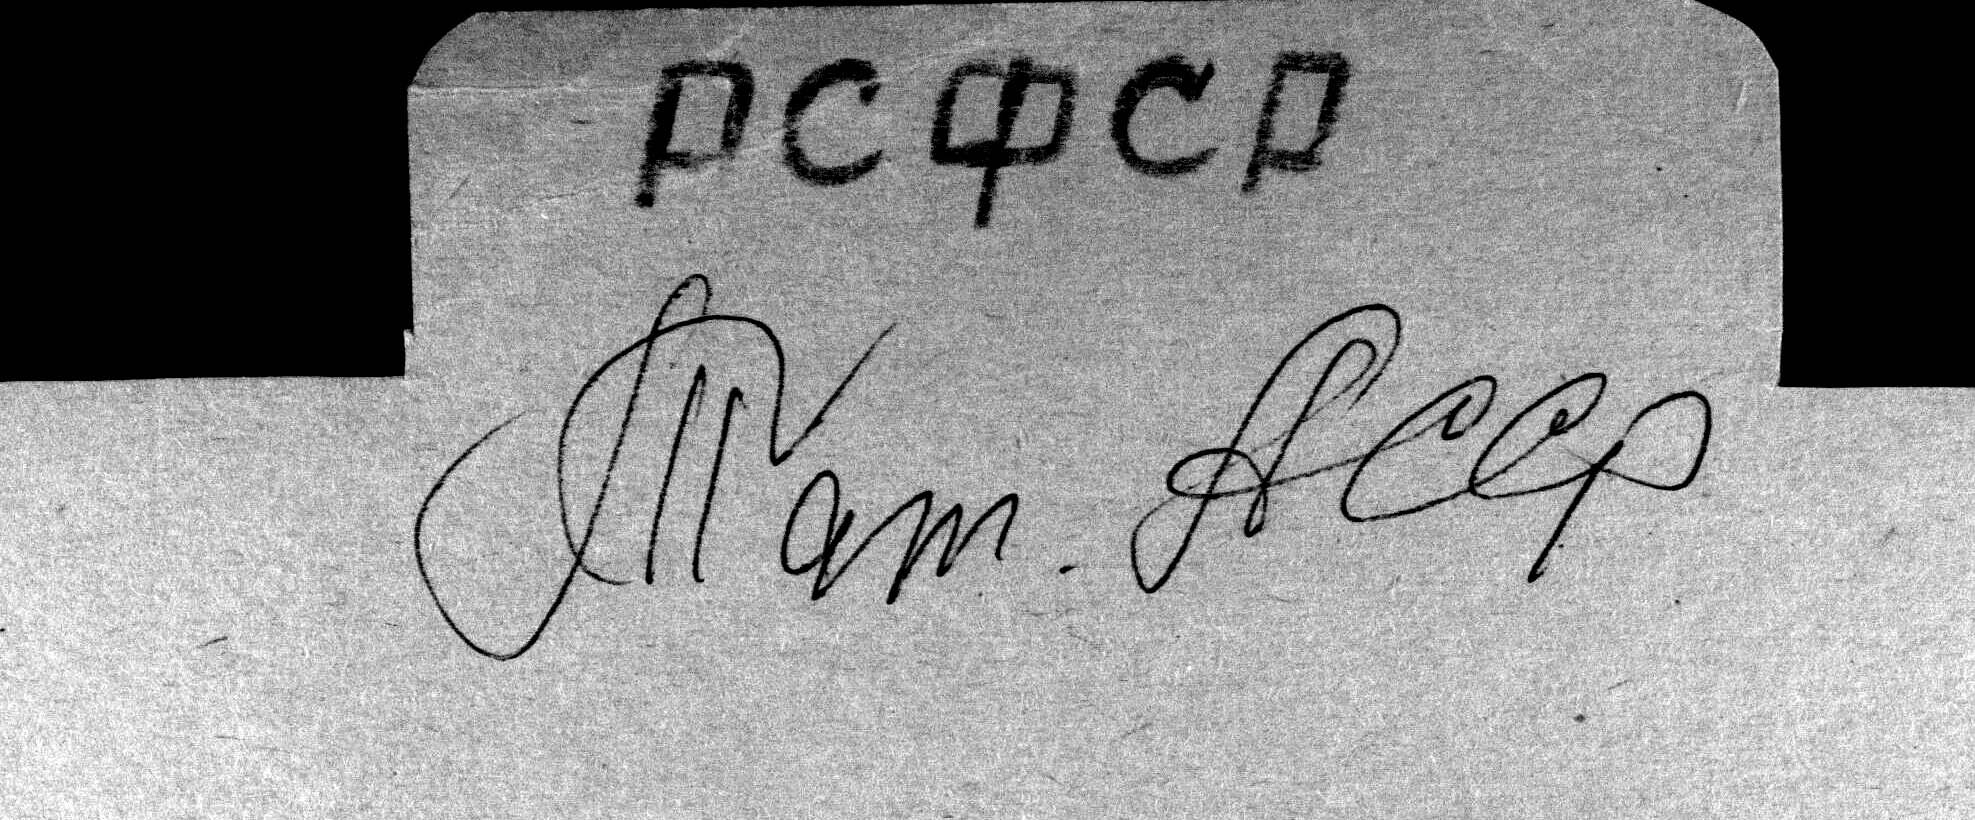 РСФСР
Тат. АССР